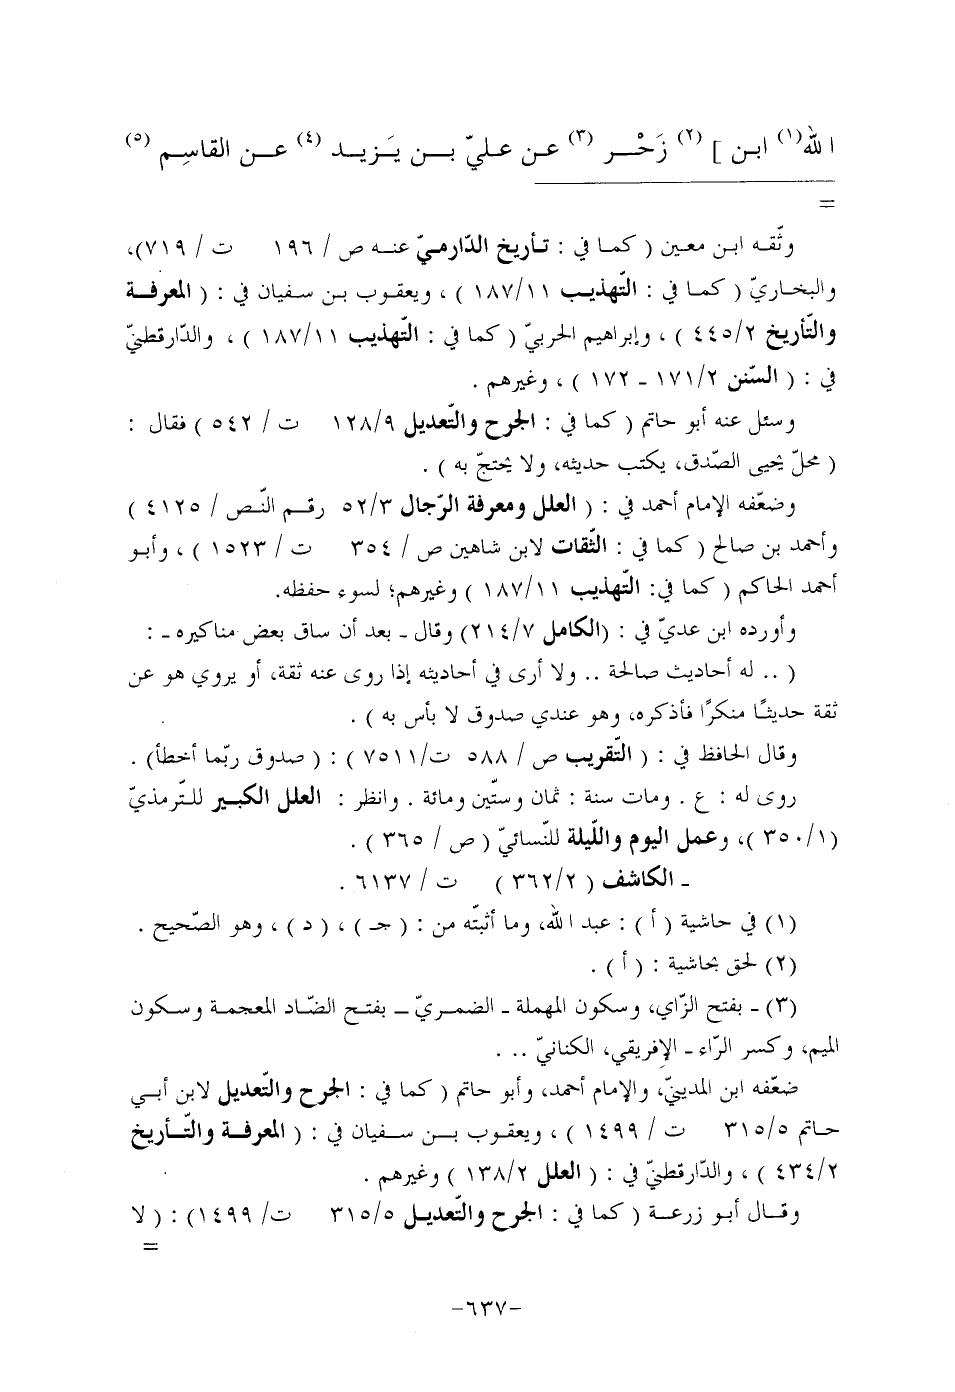 الله(١) ابن ] (٢) زَحْـــر (٣) عـن علـيّ بـــن يَـزيـــد (٤) عـــن القاسِـم (٥)
=
وثّقـه ابـن معـين ( كمـا في : تـأريخ الدّارمـيّ عنـه ص / ١٩٦ ت / ٧١٩)،
والبخـاريّ ( كمـا في : التّهذيـب ١١/ ١٨٧ ) ، ويعقـوب بـن سـفيان في : ( المعرفـة
والتّأريخ ٢/ ٤٤٥ ) ، وإبراهيم الحربيّ ( كما في : التّهذيب ١١/ ١٨٧ ) ، والدّارقطنيّ
في : ( السّنن ٢/ ١٧١ - ١٧٢ ) ، وغيرهم .
وسئل عنه أبو حاتم ( كما في : الجرح والتّعديل ٩/ ١٢٨ ت / ٥٤٢ ) فقال :
( محلّ يحيى الصّدق، يكتب حديثه، ولا يحتجّ به ) .
وضعّفه الإمام أحمد في : ( العلل ومعرفة الرّجال ٣/ ٥٢ رقـم النّـص / ٤١٢٥ )
وأحمد بن صالح ( كما في : الثّقات لابن شاهين ص / ٣٥٤ ت / ١٥٢٣ ) ، وأبـو
أحمد الحاكم ( كما في: التّهذيب ١١/ ١٨٧ ) وغيرهم؛ لسوء حفظه.
وأورده ابن عديّ في : (الكامل ٧/ ٢١٤) وقال ـ بعد أن ساق بعض مناكيره ـ :
( .. له أحاديث صالحة .. ولا أرى في أحاديثه إذا روى عنه ثقة، أو يروي هو عن
ثقة حديثًـا منكرًا فأذكره، وهو عندي صدوق لا بأس به ) .
وقال الحافظ في : ( التّقريب ص / ٥٨٨ ت/ ٧٥١١ ) : ( صدوق ربّما أخطأ) .
روى له : ع . ومات سنة : ثمان وستّين ومائة . وانظر : العلل الكبـير للـتّرمذيّ
(١/ ٣٥٠ )، وعمل اليوم واللّيلة للنّسائيّ ( ص / ٣٦٥ ) .
ـ الكاشف ( ٢/ ٣٦٢ ) ت / ٦١٣٧ .
(١) في حاشية ( أ ) : عبد الله، وما أثبتّه من : ( جـ ) ، ( د ) ، وهو الصّحيح .
(٢) لحق بحاشية : ( أ ) .
(٣) ـ بفتح الزّاي، وسكون المهملة ـ الضمـريّ ــ بفتـح الضّـاد المعجمـة وسـكون
الميم، وكسر الرّاء ـ الإفريقي، الكنانيّ .. .
ضعّفه ابن المدينيّ، والإمام أحمد، وأبو حاتم ( كما في : الجرح والتّعديل لابن أبـي
حـاتم ٥/ ٣١٥ ت / ١٤٩٩ ) ، ويعقـوب بـــن سـفيان في : ( المعرفـة والتّـأريخ
٢/ ٤٣٤ ) ، والدّارقطنيّ في : ( العلل ٢/ ١٣٨ ) وغيرهم .
وقـال أبـو زرعـة ( كما في : الجرح والتّعديـل ٥/ ٣١٥ ت/ ١٤٩٩) : ( لا
=
-٦٣٧-